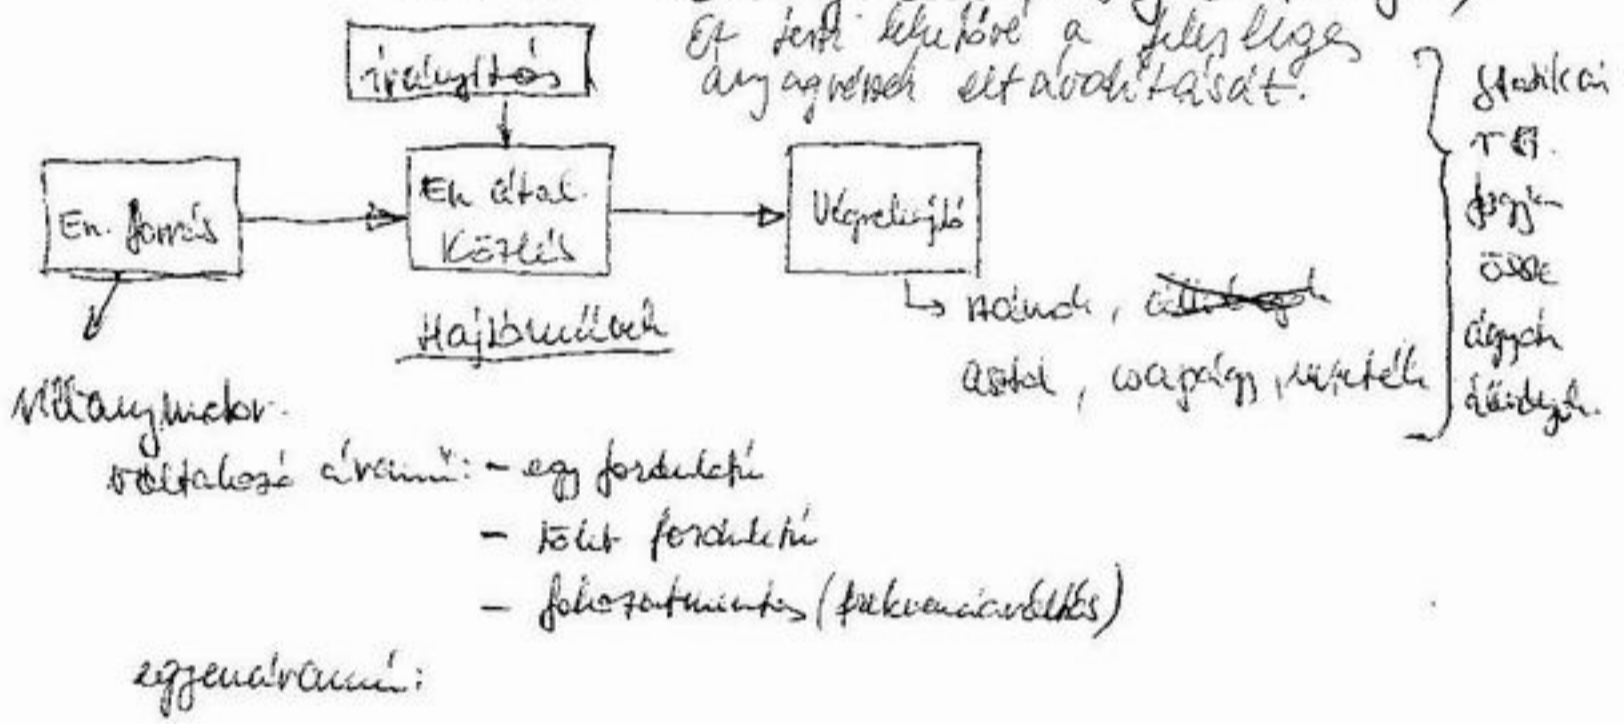 Ez teszi lehetővé a felesleges
anyagrészek eltávolítását.
irányítás
En. forrás
En által.
közlés
Végrehajtó
Hajtóművek
szánok,
asztal, csapágy, vezeték
statikai
fogja
össze
ágyak
Villanymotor.
váltakozó áramú: - egy fordulatú
- több fordulatú
- fokozatmentes (frekvenciaváltós)
egyenáramú: